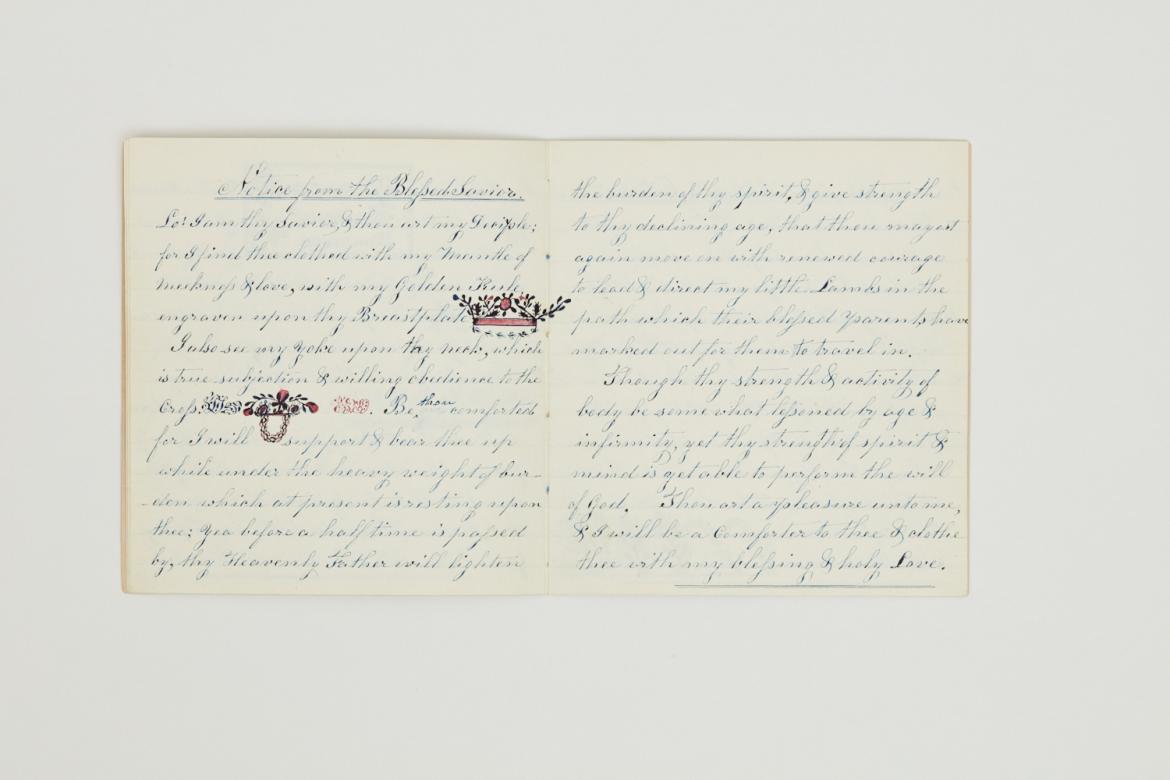 Notice from the Blessed Savior.
Lo! I am thy Savior, & thou art my Deciple;
for I find thee clothed with my Mantle of
meekness & love, with my Golden Rule
engraven upon thy Breastplate
I also see my Yoke upon thy neck, which
is true subjection & willing obedience to the
Cross. Be thou comforted
for I will support & bear thee up
while under the heavy weight of bur-
den which at present is resting upon
thee; Yea before a half time is passed
by, thy Heavenly Father will lighten
the burden of thy spirit, & give strength
to thy declining age, that thou mayest
again move on with renewed courage
to lead & direct my little Lambs in the
path which their blessed parents have
marked out for them to travel in.
Though thy strength & activity of
body be some what lessoned by age &
infirmity, yet thy strength of spirit &
mind is yet able to perform the will
of God. Thou art a pleasure unto me,
& I will be a Comforter to thee & clothe
thee with my blessing, & holy Love.